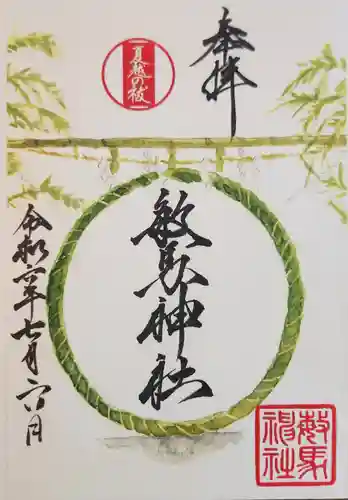 奉拝
夏越の祓
敏馬神社
令和六年七月六日
敏馬
神社